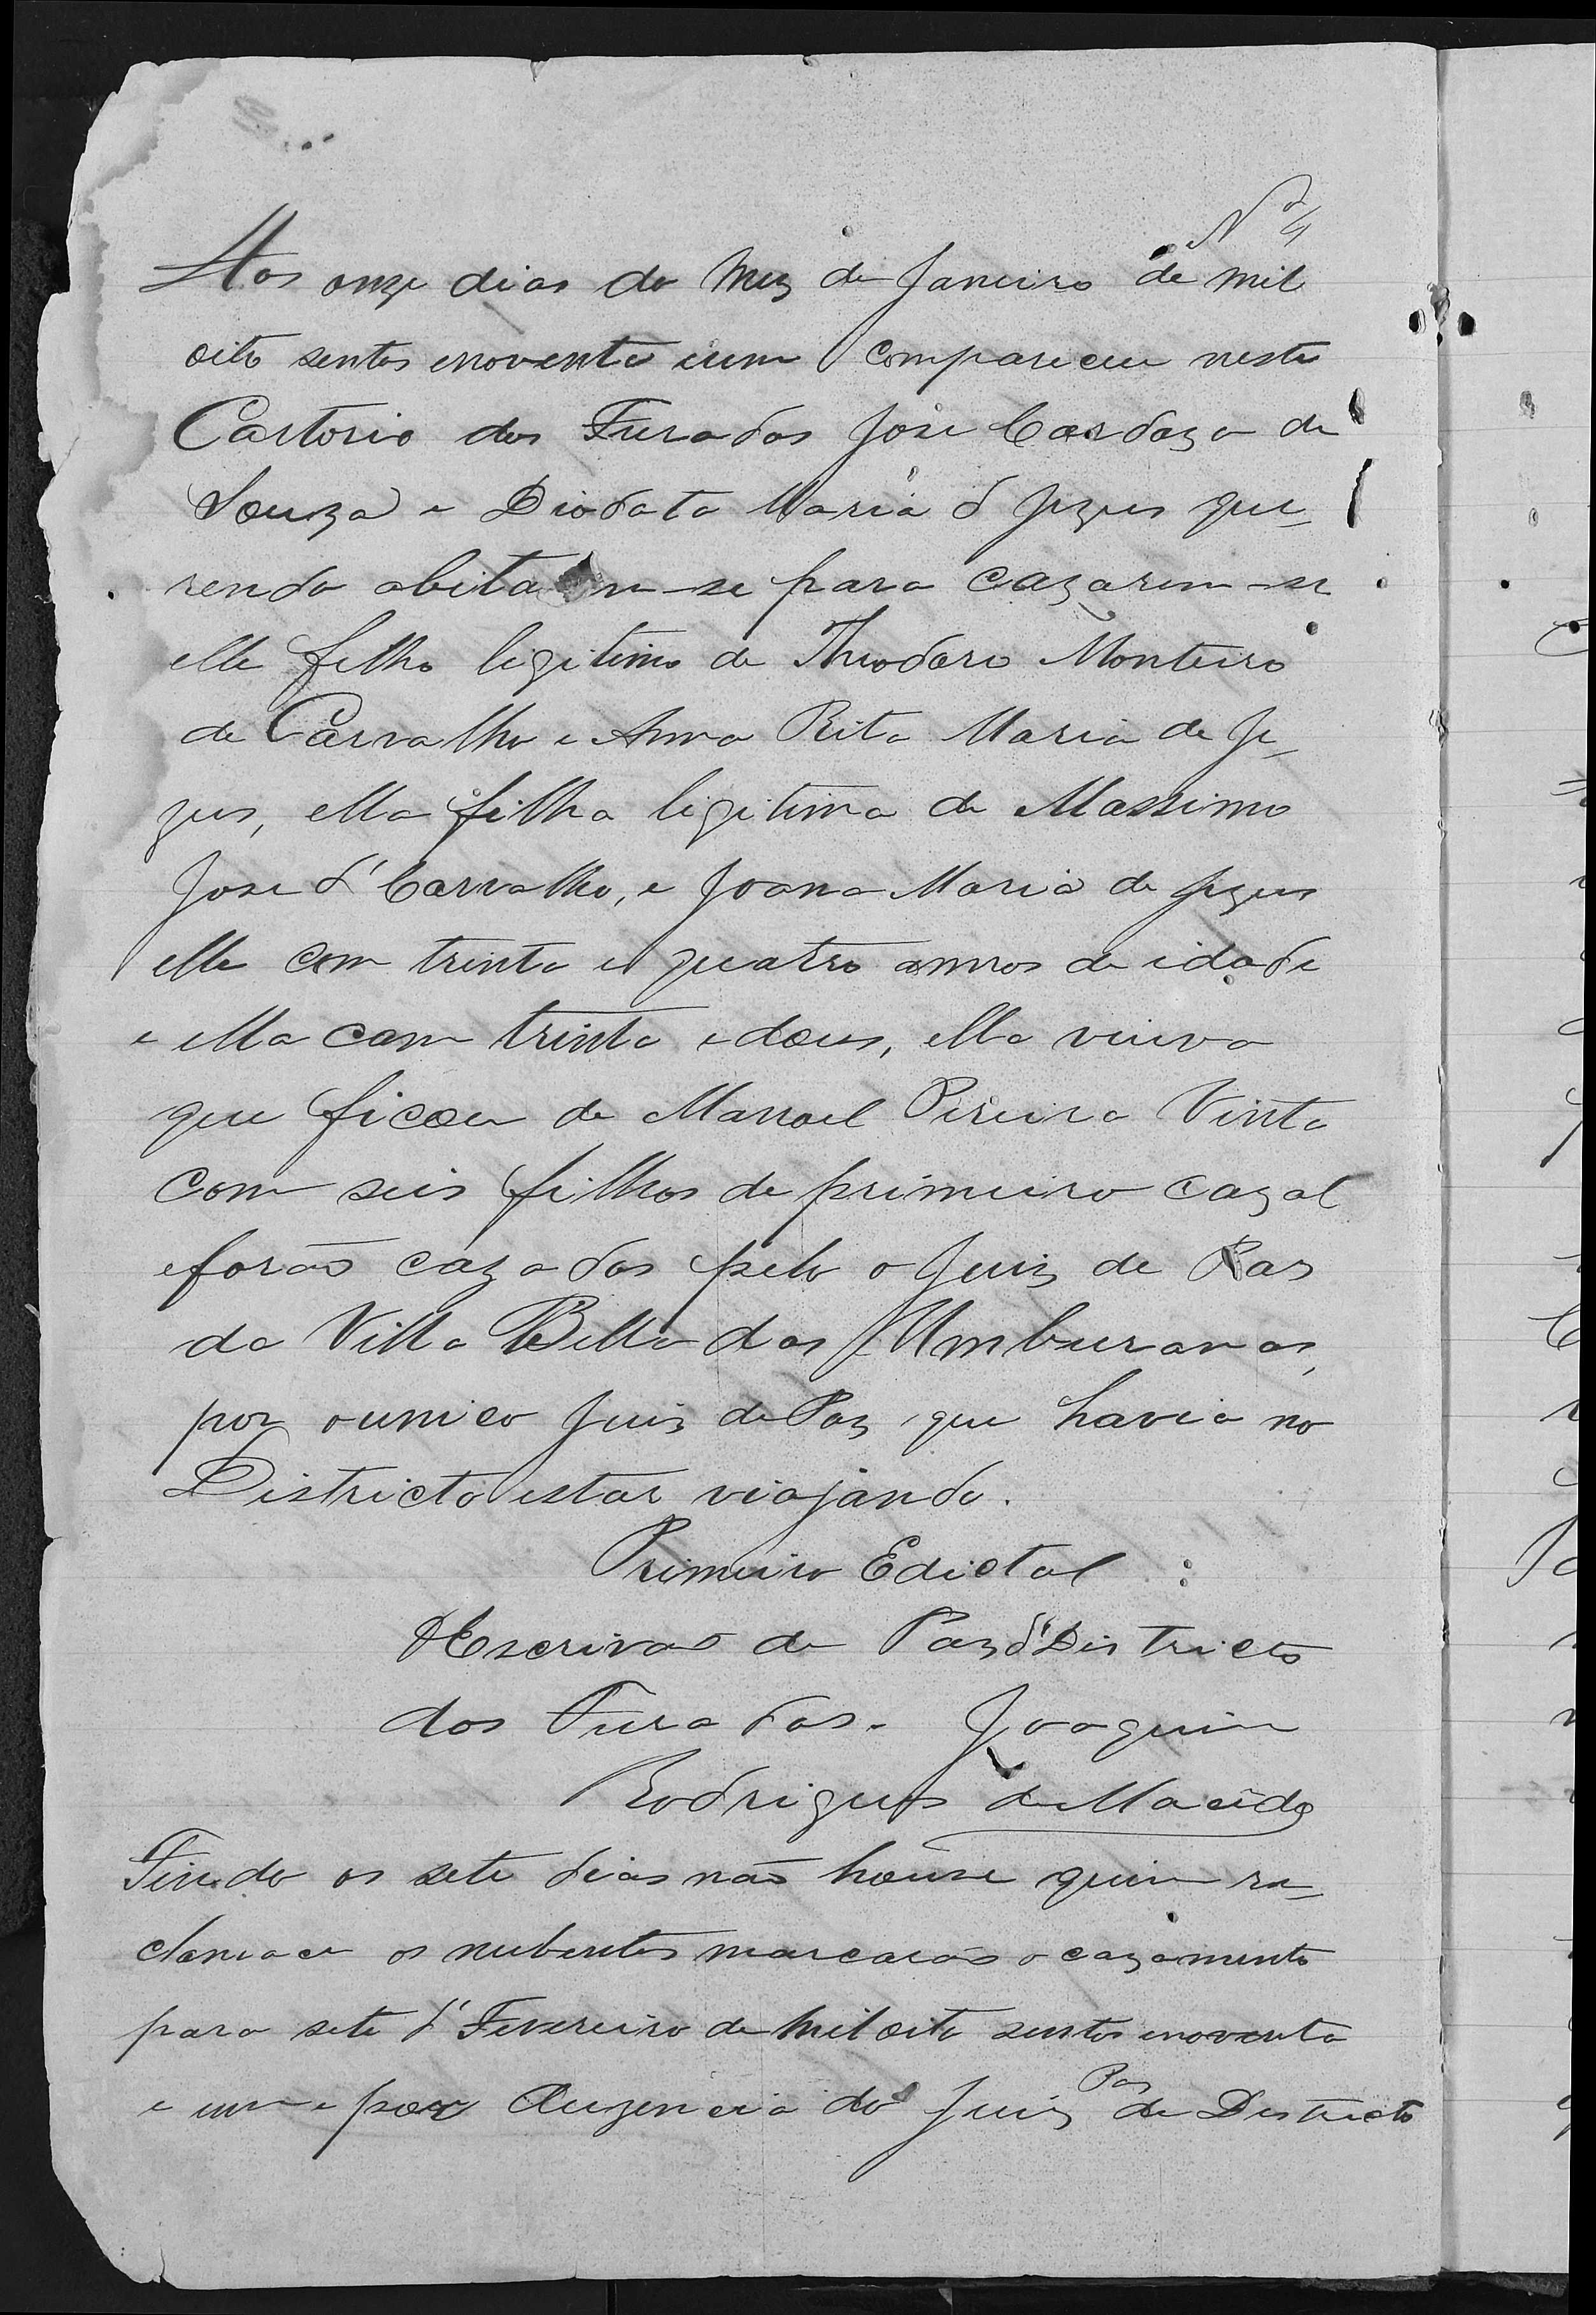 Nº 4
Aos onze dias do Mez de Janeiro de mil
oito sentos enoventa eum compareceu neste
Cartorio dos Furados José Cardozo de
Souza e Diodata Maria d Jezus que-
rendo abitarem-se para cazarem-se
elle filho ligitimo de Theodoro Monteiro
de Carvalho e Anna Rita Maria de Je-
zus, ella filha ligitima de Massimo
José d'Carvalho, e Joana Maria de Jezus
elle com trinta e quatro annos de idade
e ella com trinta e dous, ella viuva
que ficou de Manoel Pireira Pinto
com seis filhos de primeiro cazal
eforão cazados pelo o Juiz de Pas
da Villa Bella das Umburanas,
por ounico Juiz de Paz que havia no
Districto estar viajando.
Primeiro Edictal :
O Escrivão de Paz d'Districto
dos Furados. Joaquim
Rodrigues de Macêdo
Findo os sete dias não houve quem re-
clamace os nubentes marcarão o cazamento
para sete d'Fevereiro de mil oito sentos enoventa
e um e por Auzencia do Juiz Pas de Districto